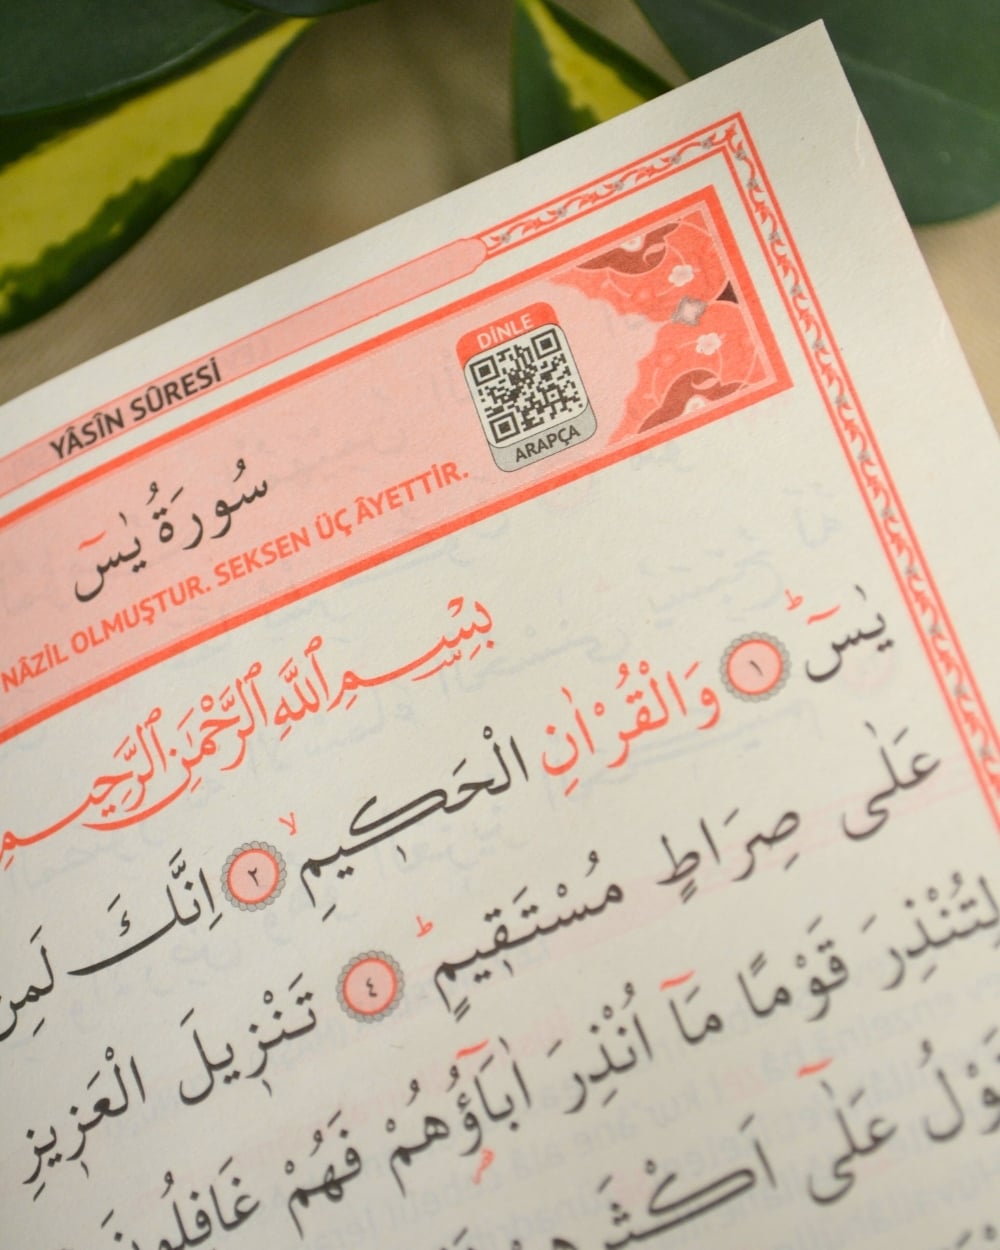 YÂSÎN SÛRESİ
DİNLE
ARAPÇA
سُورَةُ يٰسٓ
NÂZİL OLMUŞTUR. SEKSEN ÜÇ ÂYETTİR.
بِسْمِ ٱللَّهِ ٱلرَّحْمَٰنِ ٱلرَّحِيمِ
يٰسٓ ۜ ١ وَالْقُرْاٰنِ الْحَكيمِ ۙ ٢ اِنَّكَ لَمِنَ
عَلٰى صِرَاطٍ مُسْتَقيمٍ ۜ ٤ تَنْزيلَ الْعَزيزِ
لِتُنْذِرَ قَوْمًا مَٓا اُنْذِرَ اٰبَٓاؤُ۬هُمْ فَهُمْ غَافِلُونَ
عَلٰٓى اَكْثَرِهِمْ